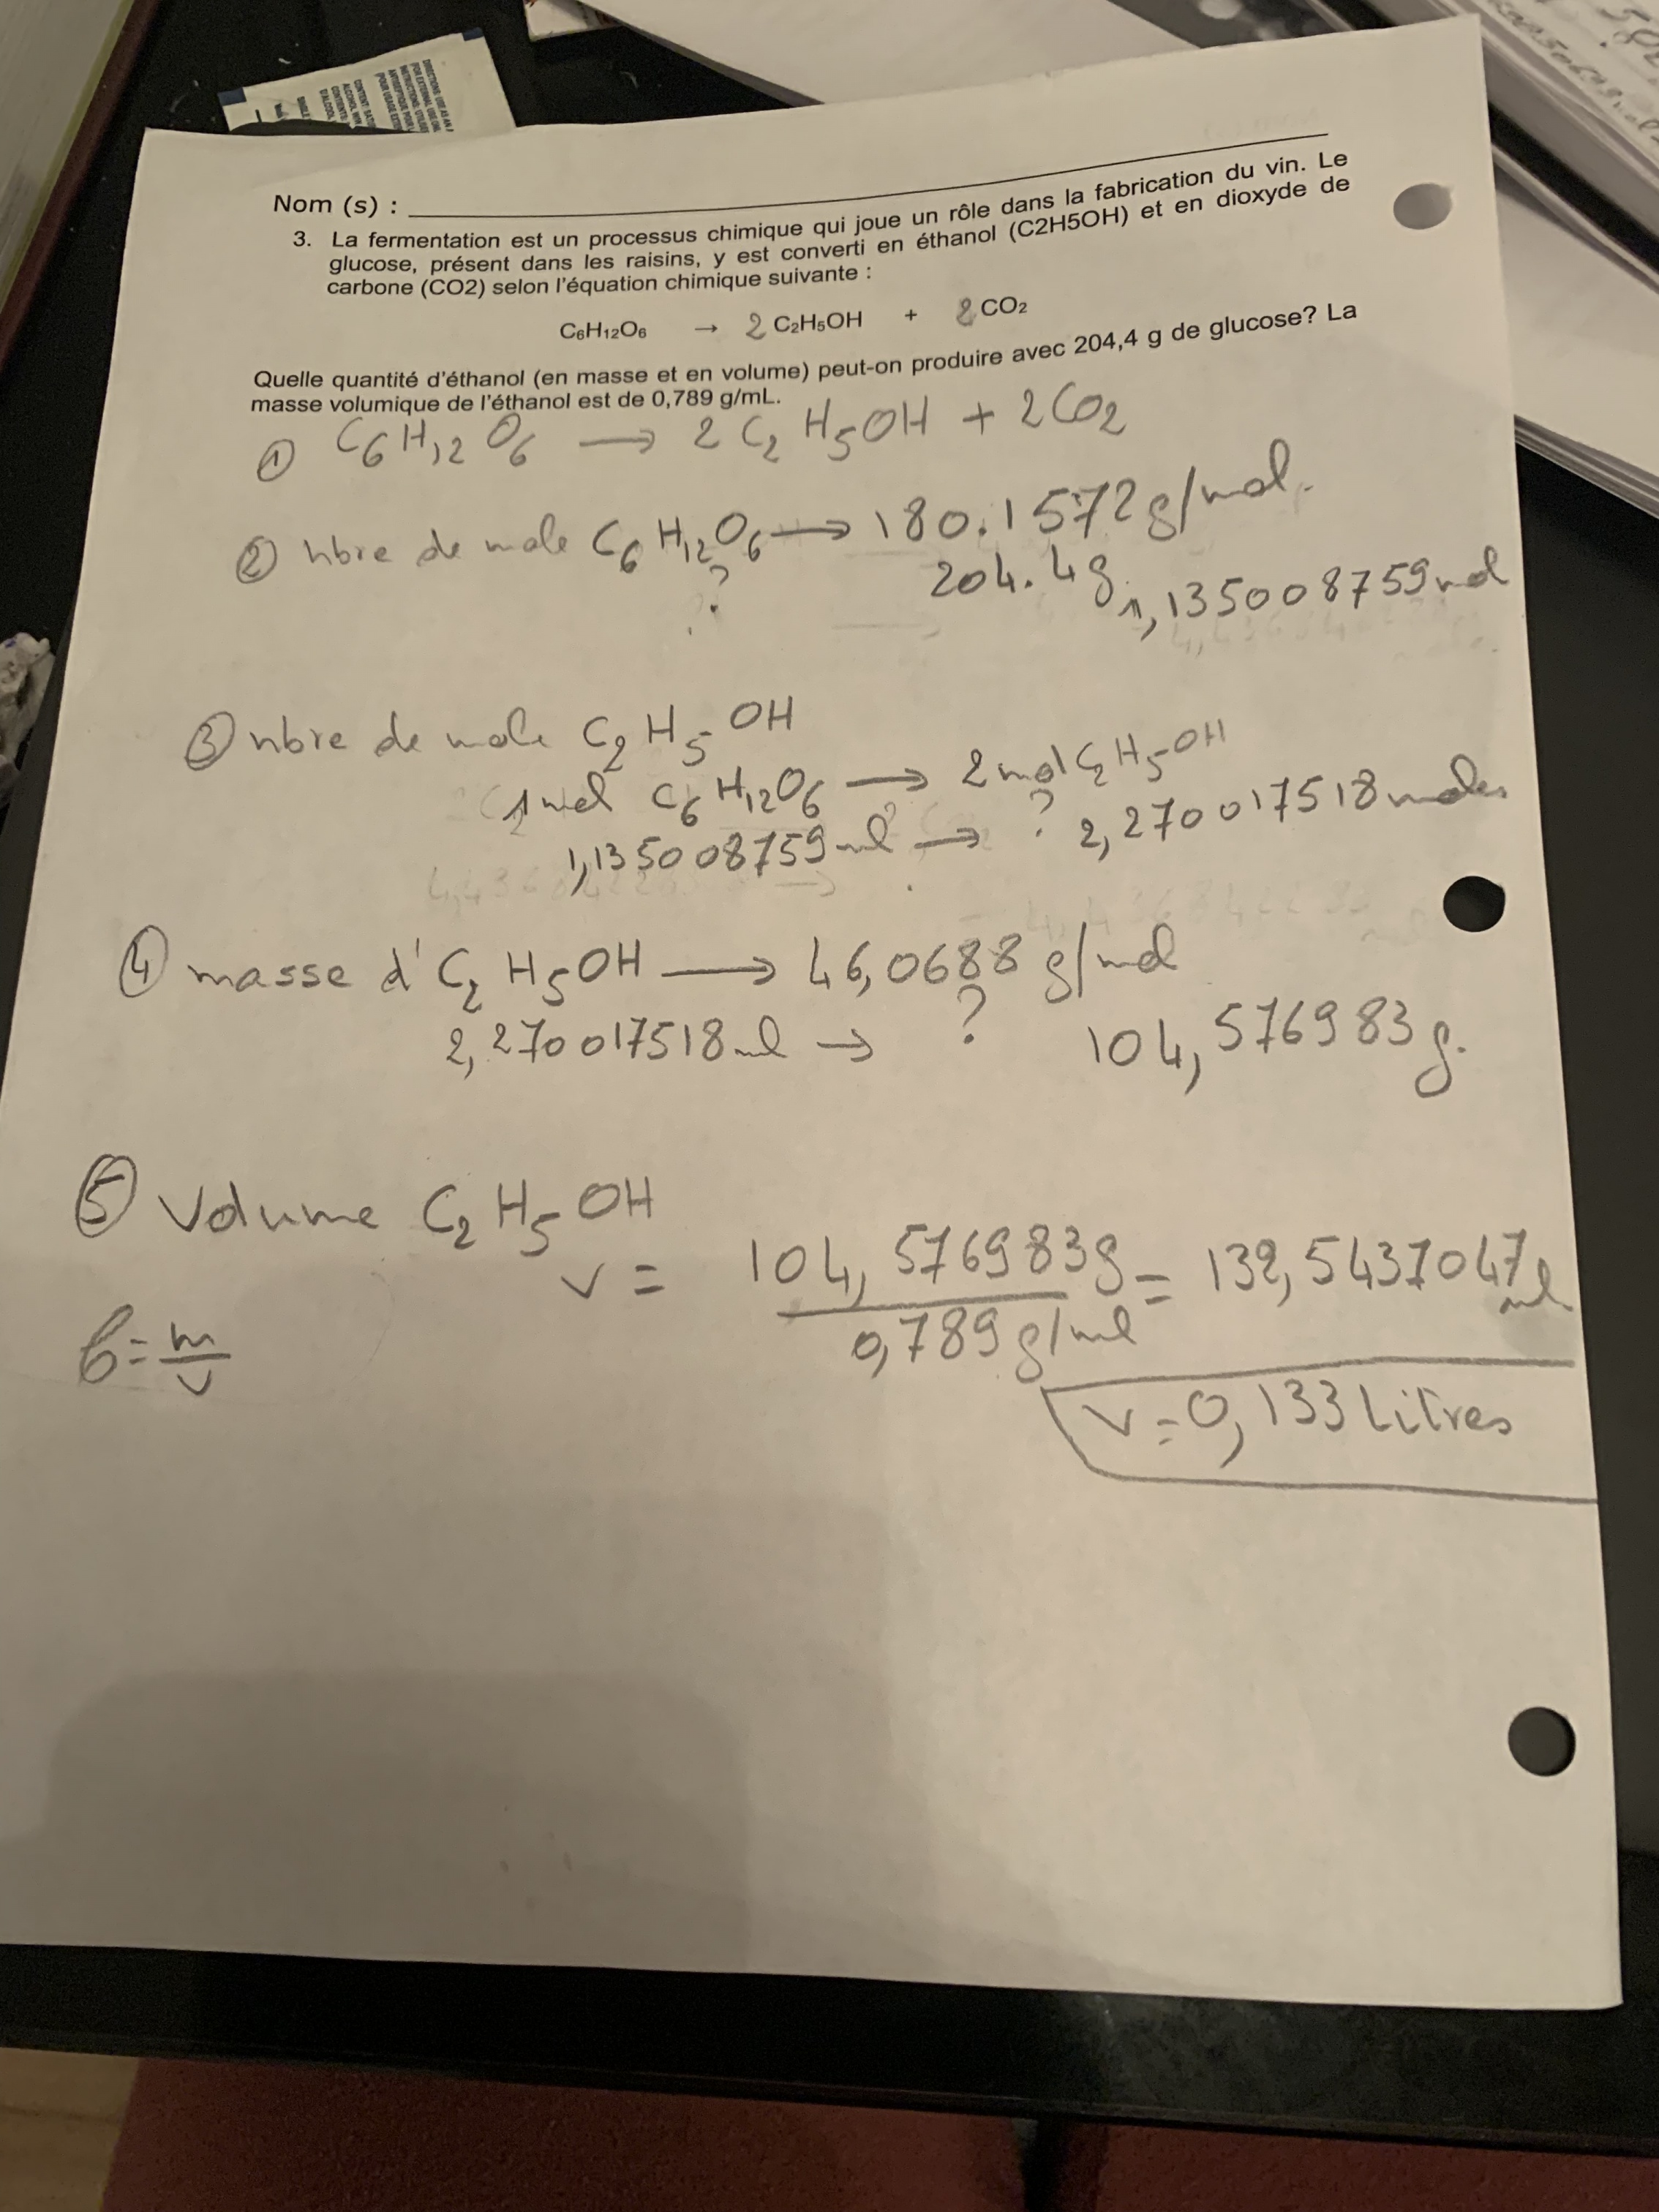 Nom (s) :
3. La fermentation est un processus chimique qui joue un rôle dans la fabrication du vin. Le
glucose, présent dans les raisins, y est converti en éthanol (C2H5OH) et en dioxyde de
carbone (CO2) selon l'équation chimique suivante :
C₆H₁₂O₆ → 2 C₂H₅OH + 2 CO₂
Quelle quantité d'éthanol (en masse et en volume) peut-on produire avec 204,4 g de glucose? La
masse volumique de l'éthanol est de 0,789 g/mL.
① C₆H₁₂O₆ → 2 C₂H₅OH + 2CO₂
② nbre de mole C₆H₁₂O₆ → 180.1572 g/mol.
? 204.4g 1,135008759 mol
③ nbre de mole C₂H₅OH
1 mol C₆H₁₂O₆ → 2 mol C₂H₅OH
1,135008759 ml → ? 2,270017518 moles
④ masse d' C₂H₅OH → 46,0688 g/mol
2,270017518 ml → ? 104,576983 g.
⑤ Volume C₂H₅OH
v = 104,576983g / 0,789 g/ml = 132,5437047 ml
ρ = m/v
v = 0,133 Litres